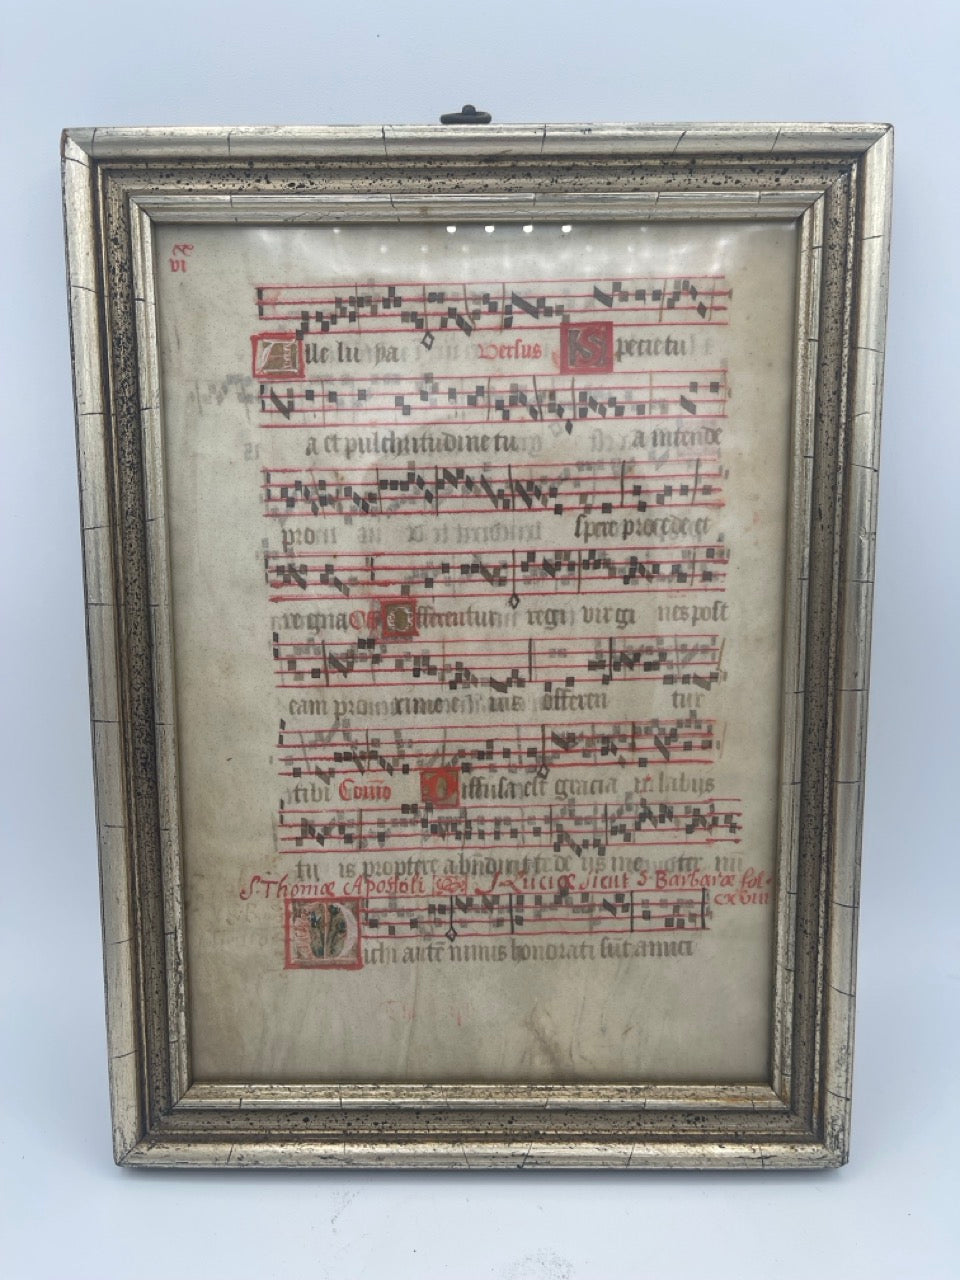 vi
Alle lu ya Versus Specie tu
a et pulchritudine tu a intende
pro spere procede et
regna Of Offerentur regi virgi nes post
eam proxime e ius offeren tur
tibi Comō Diffusa est gracia in labijs
tu is propterea bn̄dixit te de
S. Thomæ Apostoli S. Luciæ sicut S. Barbaræ fol.
cxviii
Michi autē nimis honorati sūt amici